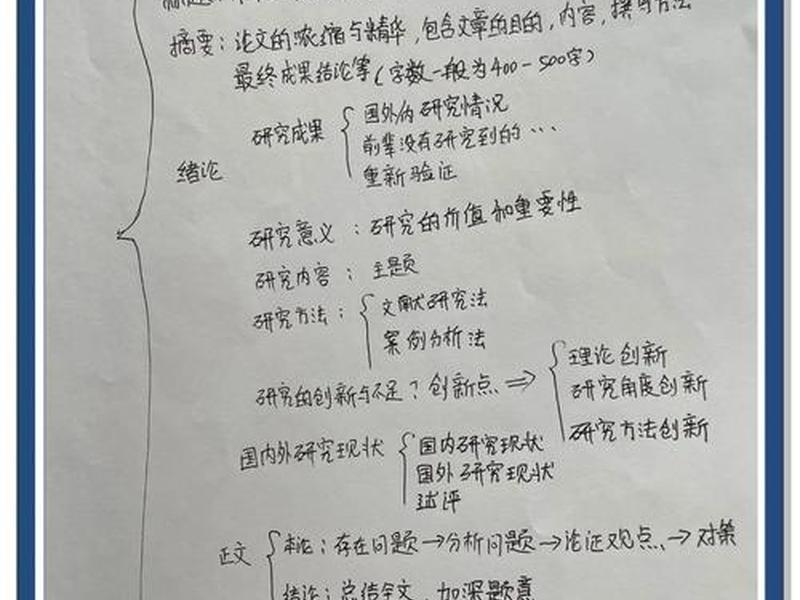 摘要：论文的浓缩与精华，包含文章的目的，内容，撰写方法
最终成果结论等（字数一般为400-500字）
研究成果
国外内研究情况
前辈没有研究到的…
重新验证
绪论
研究意义：研究的价值和重要性
研究内容：主题
研究方法：
文献研究法
案例分析法
研究的创新与不足？创新点 ⇒
理论创新
研究角度创新
研究方法创新
国内外研究现状
国内研究现状
国外研究现状
述评
正文
本论：存在问题→分析问题→论证观点→对策
结论：总结全文，加深题意